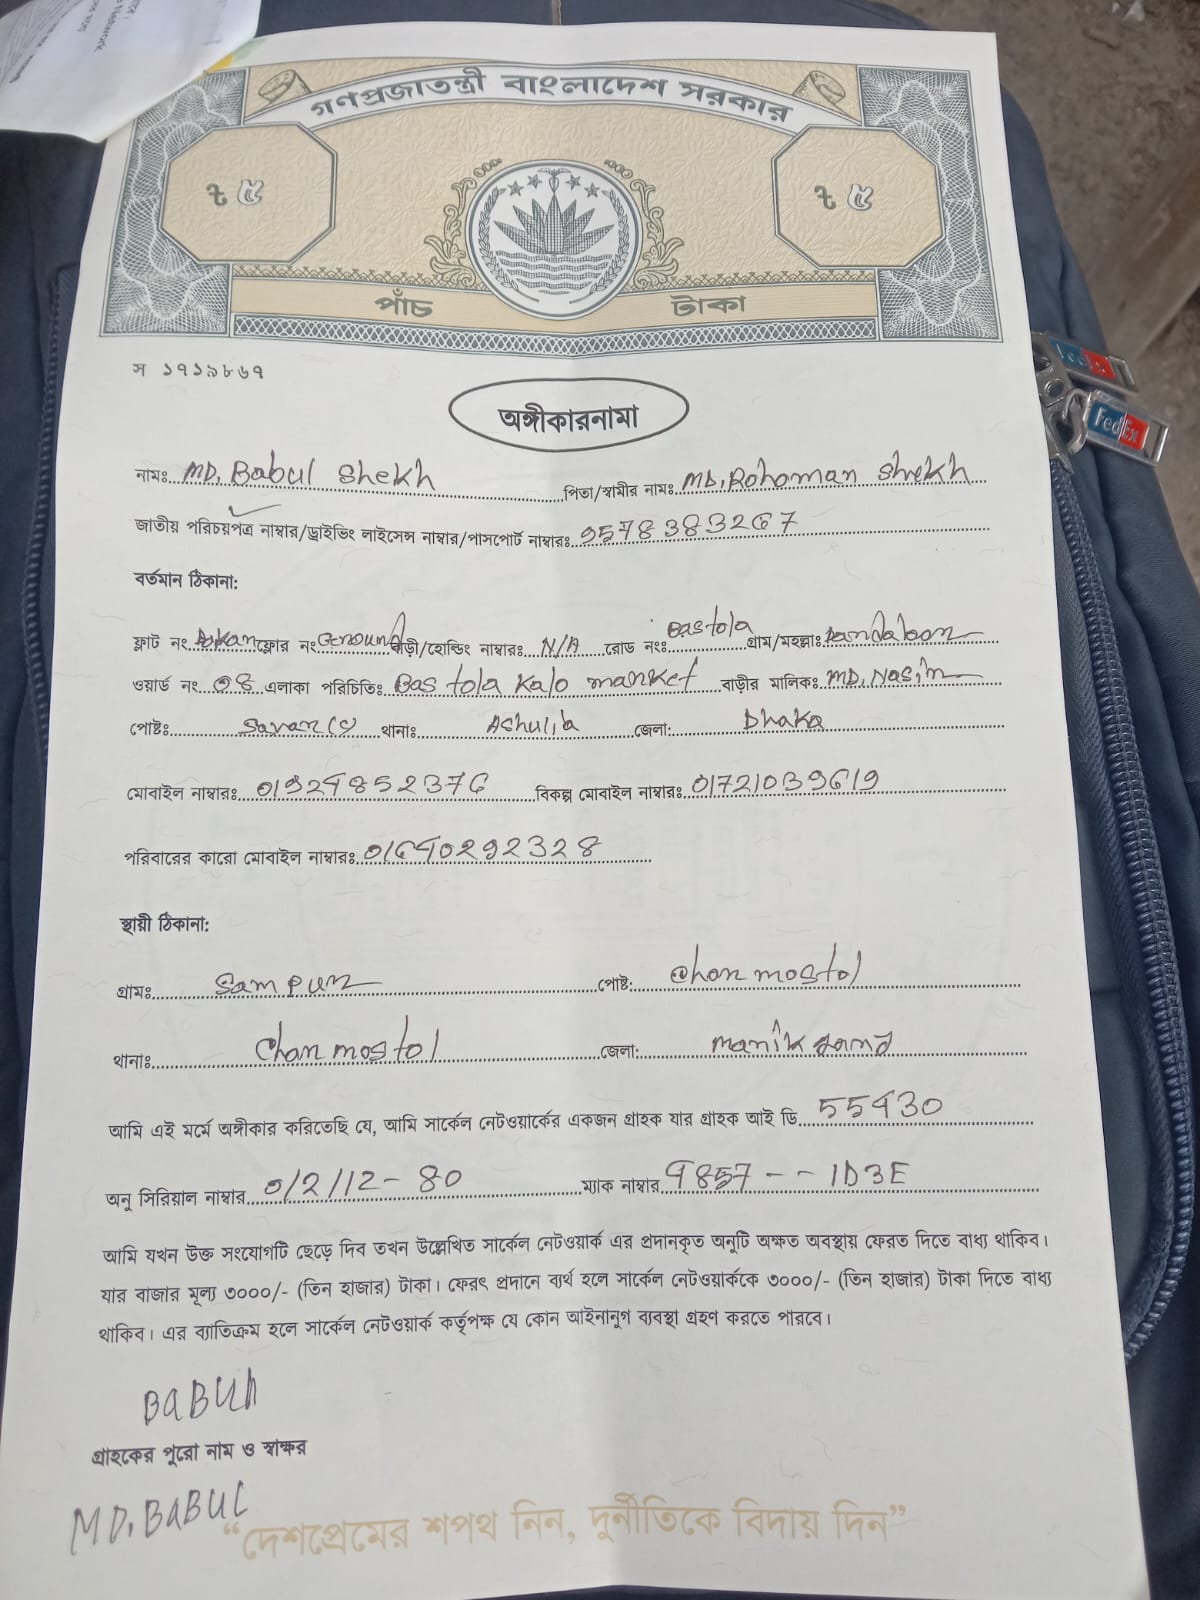 গণপ্রজাতন্ত্রী বাংলাদেশ সরকার
৳ ৫ ৳ ৫
পাঁচ টাকা
স ১৭১৯৮৬৭
অঙ্গীকারনামা
নামঃ MD, Babul Shekh পিতা/স্বামীর নামঃ MD, Rohoman Shekh
জাতীয় পরিচয়পত্র নাম্বার/ড্রাইভিং লাইসেন্স নাম্বার/পাসপোর্ট নাম্বারঃ 9578383267
বর্তমান ঠিকানা:
ফ্লাট নং ফ্লোর নং Geround বাড়ী/হোল্ডিং নাম্বারঃ N/A রোড নংঃ Bastola গ্রাম/মহল্লাঃ
ওয়ার্ড নং 08 এলাকা পরিচিতিঃ Bastola Kalo market বাড়ীর মালিকঃ MD, Nasim
পোষ্টঃ থানাঃ Ashulia জেলা: Dhaka
মোবাইল নাম্বারঃ 01924852376 বিকল্প মোবাইল নাম্বারঃ 01721039619
পরিবারের কারো মোবাইল নাম্বারঃ 01640292328
স্থায়ী ঠিকানা:
গ্রামঃ Sampur পোষ্ট: Chonmostol
থানাঃ Chanmostol জেলা:
আমি এই মর্মে অঙ্গীকার করিতেছি যে, আমি সার্কেল নেটওয়ার্কের একজন গ্রাহক যার গ্রাহক আই ডি 55430
অনু সিরিয়াল নাম্বার 0/2/12-80 ম্যাক নাম্বার 4857 - - 1D3E
আমি যখন উক্ত সংযোগটি ছেড়ে দিব তখন উল্লেখিত সার্কেল নেটওয়ার্ক এর প্রদানকৃত অনুটি অক্ষত অবস্থায় ফেরত দিতে বাধ্য থাকিব।
যার বাজার মূল্য ৩০০০/- (তিন হাজার) টাকা। ফেরৎ প্রদানে ব্যর্থ হলে সার্কেল নেটওয়ার্ককে ৩০০০/- (তিন হাজার) টাকা দিতে বাধ্য
থাকিব। এর ব্যাতিক্রম হলে সার্কেল নেটওয়ার্ক কর্তৃপক্ষ যে কোন আইনানুগ ব্যবস্থা গ্রহণ করতে পারবে।
BABUL
গ্রাহকের পুরো নাম ও স্বাক্ষর
MD. BABUL
“দেশপ্রেমের শপথ নিন, দুর্নীতিকে বিদায় দিন”
FedEx
FedEx
Network